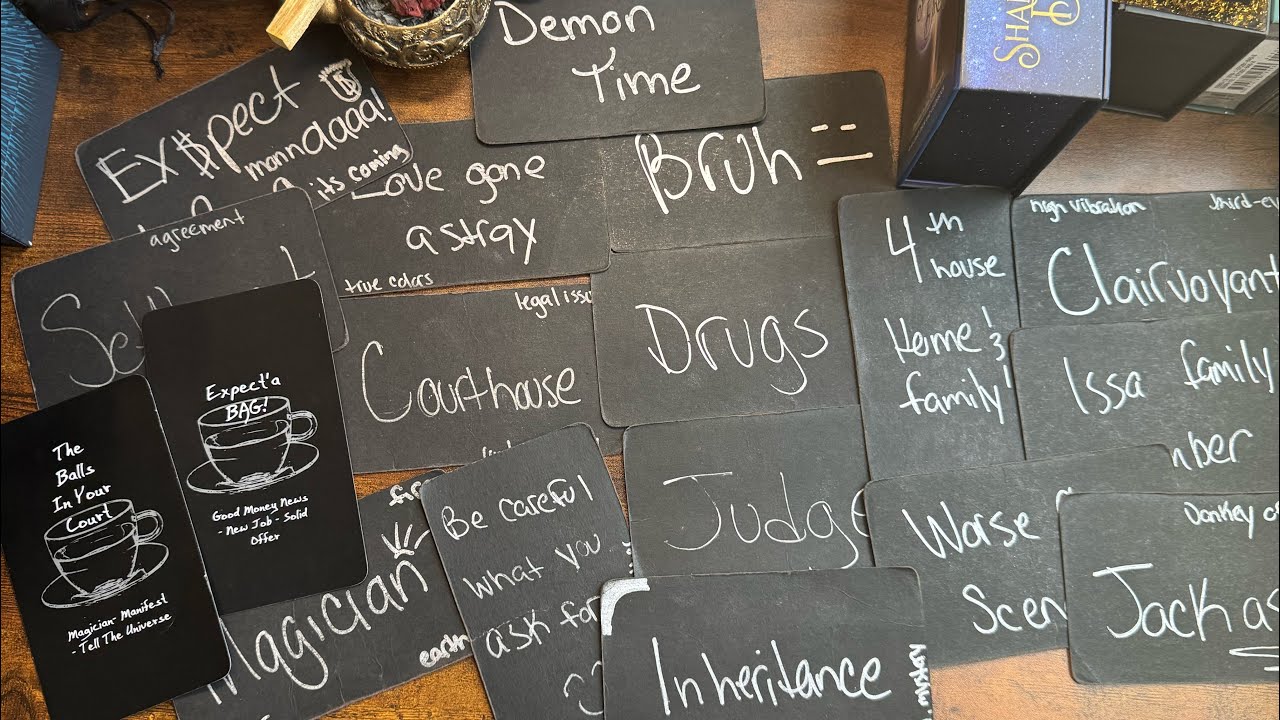 Demon
Time
SHA
Ex$pect
manndaaaa!
its coming
Love gone
astray
true colors
Bruh =
agreement
legal issu
Courthouse
Drugs
4th
house
Home &
family
high vibration
third-ey
Clairvoyant
Issa family
mber
Expect'a
BAG!
Good Money News
- New Job - Solid
Offer
The
Balls
In Your
Court
Magician- Manifest
- Tell The Universe
Magician
earth
Be careful
what you
ask for
Judge
Worse
Scen
Donkey o
Jack as
Inheritance